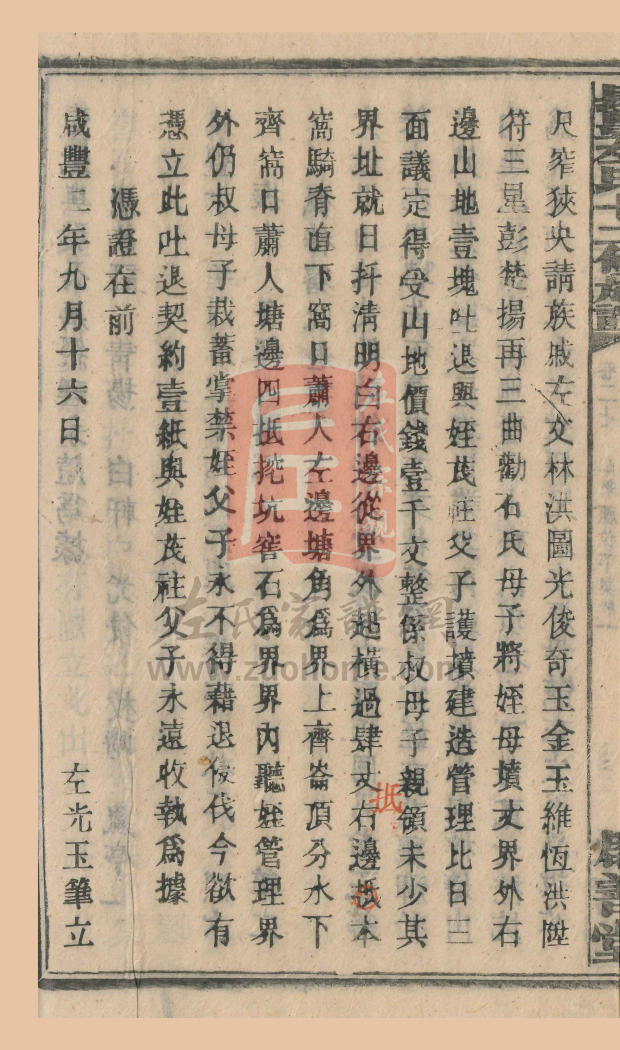 尺窄狹央請族戚左文林洪圖光俊奇玉金玉維恆洪陞
符三星彭楚揚再三曲勸右氏母子將姪母墳丈界外右
邊山地壹塊吐退與姪茂社父子護墳建造管理比日三
面議定得受山地價錢壹千文整係叔母子親領未少其
界址就日扦清明白右邊從界外起橫過肆丈右邊抵本
抵
窩騎脊直下窩口蕭人左邊塘角爲界上齊崙頂分水下
齊窩口蕭人塘邊四抵挖坑窖石爲界界內聽姪管理界
外仍叔母子栽蓄掌禁姪父子永不得藉退侵伐今欲有
憑立此吐退契約壹紙與姪茂社父子永遠收執爲據
憑證在前
咸豐二年九月十六日 左光玉筆立
左氏家譜網
www.zuohome.com